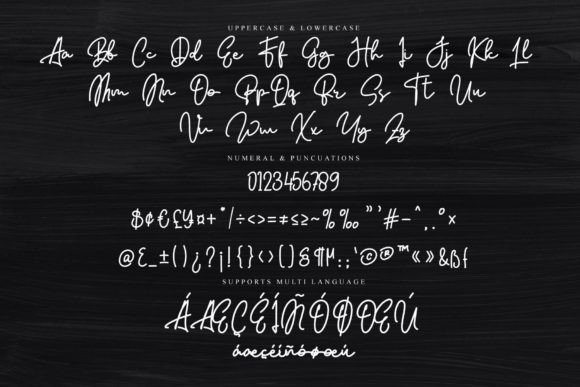 UPPERCASE & LOWERCASE
Aa Bb Cc Dd Ee Ff Gg Hh Ii Jj Kk Ll
Mm Nn Oo Pp Qq Rr Ss Tt Uu
Vv Ww Xx Yy Zz
NUMERAL & PUNCUATIONS
0123456789
$¢€£¥¤+*/÷<>=≠≤≥~%‰”’#–^,.°×
@&_±()¿?¡!{}‹›[]§¶µ:;‘©®™«»&ßf
SUPPORTS MULTI LANGUAGE
ÁÆÇÉÍÑÓØŒÚ
áæçéíñóøœú